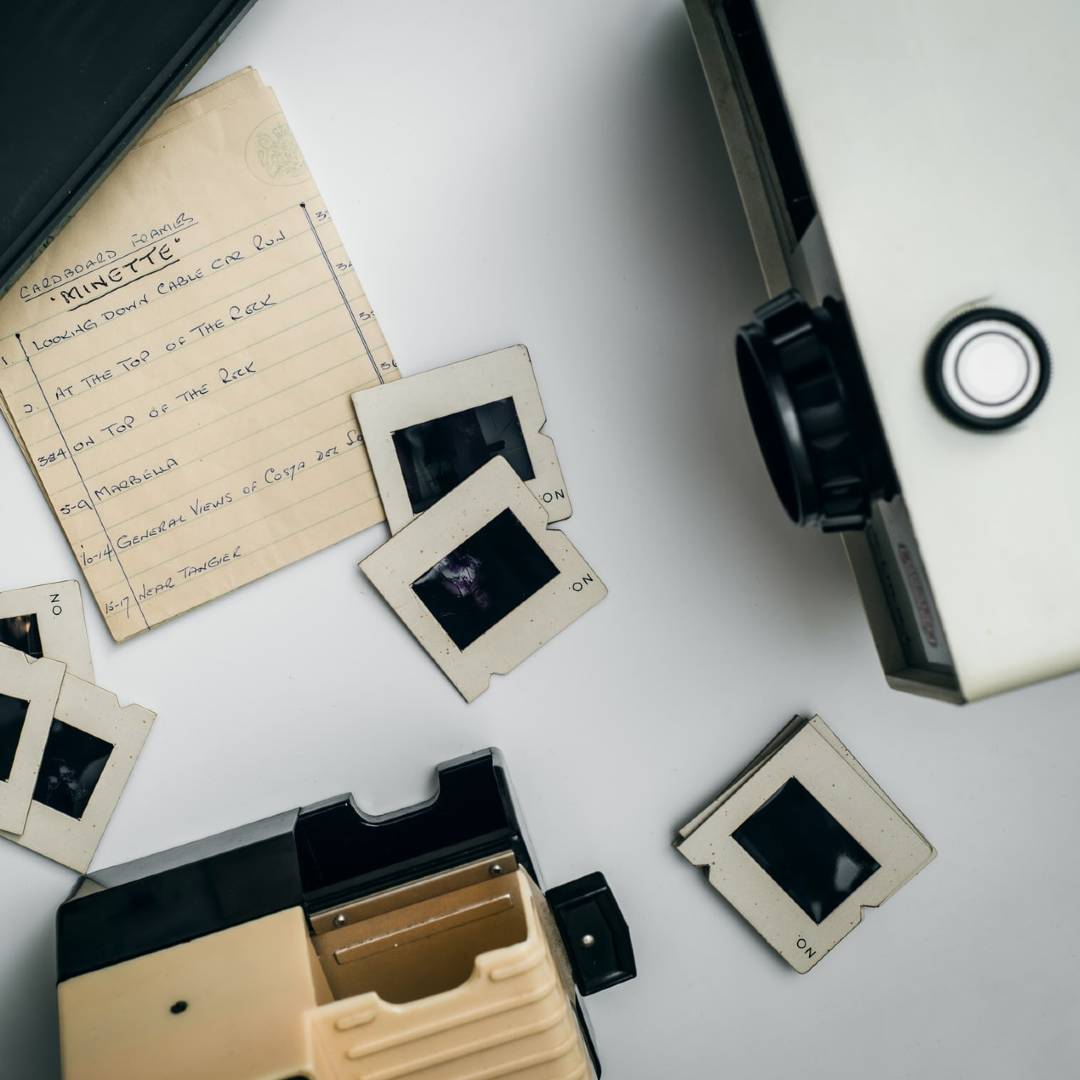 CARDBOARD FORMES
"MINETTE"
1 LOOKING DOWN CABLE CAR RUN
2. AT THE TOP OF THE ROCK
3&4 ON TOP OF THE ROCK
5-9 MARBELLA
10-14 GENERAL VIEWS OF COSTA DEL
15-17 NEAR TANGIER
NO.
NO.
NO
NO.